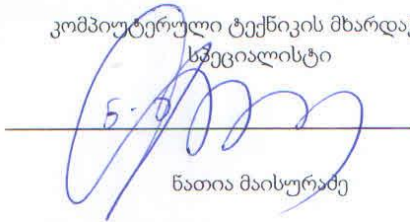 კომპიუტერული ტექნიკის
სპეციალისტი
ნათია მაისურაძე